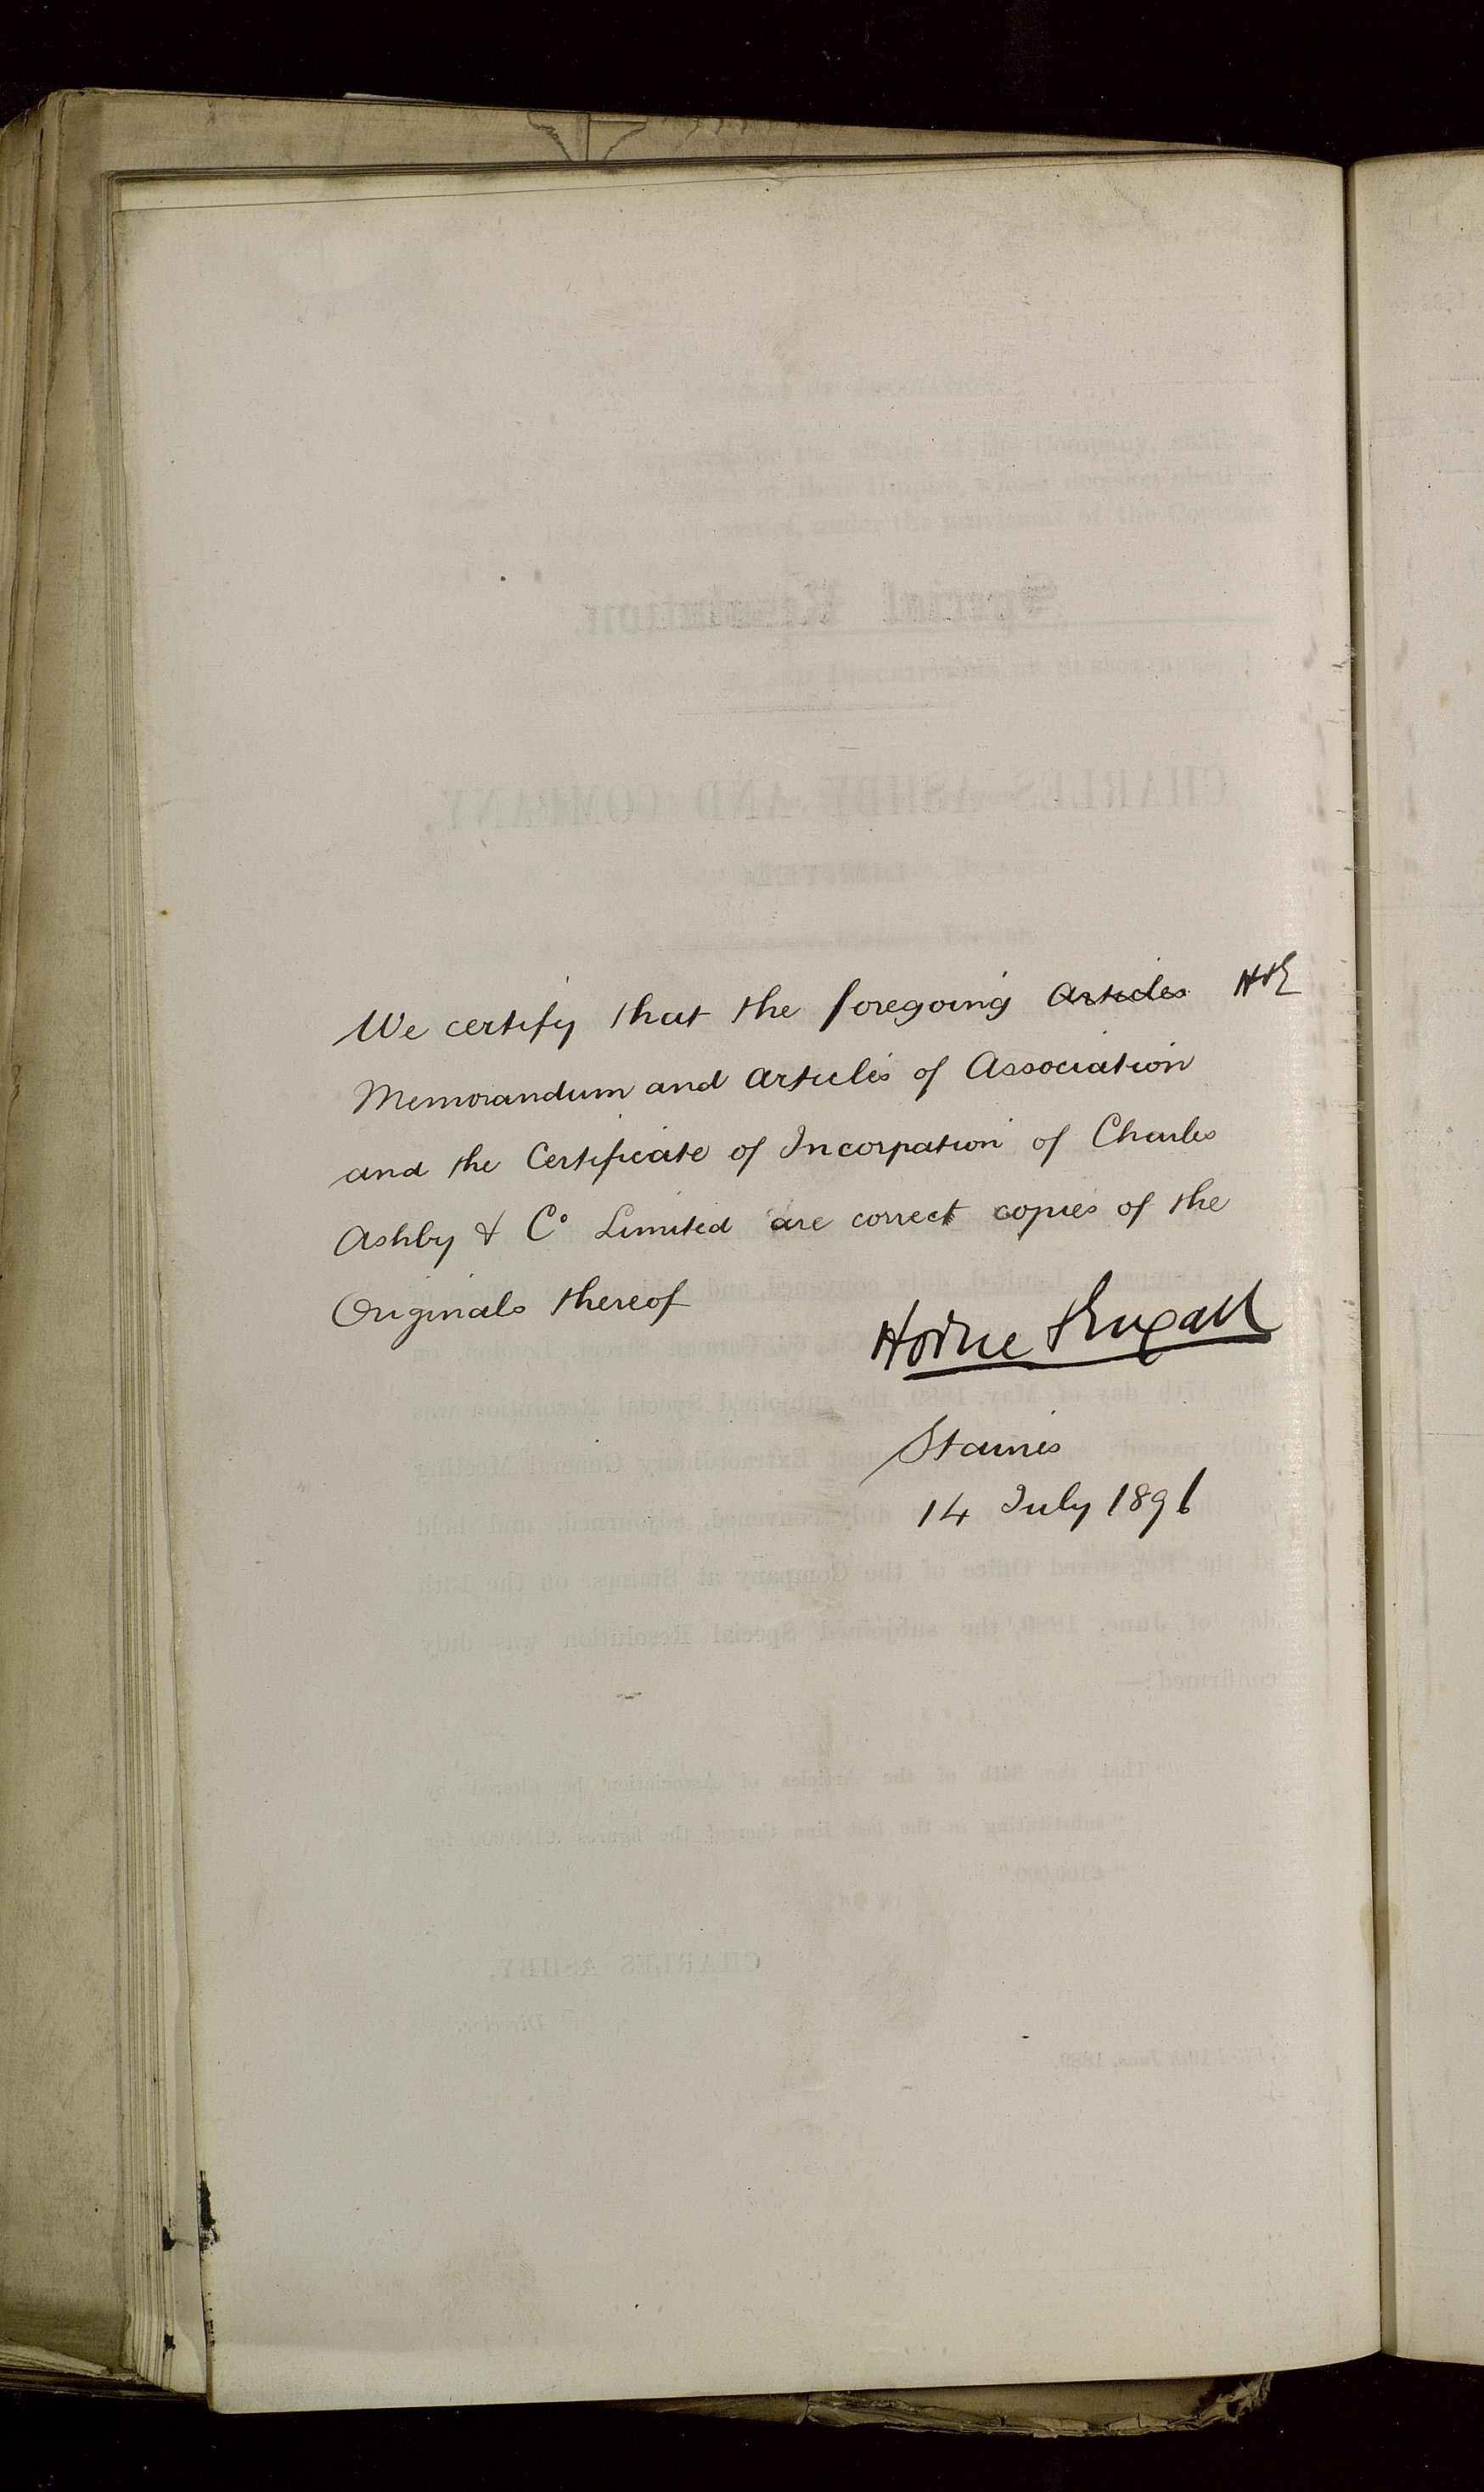 We certify that the foregoing Articles H&E
Memorandum and Articles of Association
and the Certificate of Incorpation of Charles
Ashby & Co Limited are correct copies of the
Originals thereof
Horne & Engall
Staines
14 July 1896